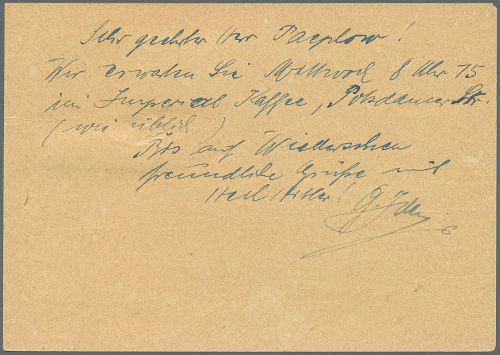 Sehr geehrter Herr Paeplow!
Wir erwarten Sie Mittwoch 8 Uhr 15
im Imperial Kaffee, Potsdamer Str.
(wie üblich)
Bis auf Wiedersehen
freundliche Grüße mit
Heil Hitler!